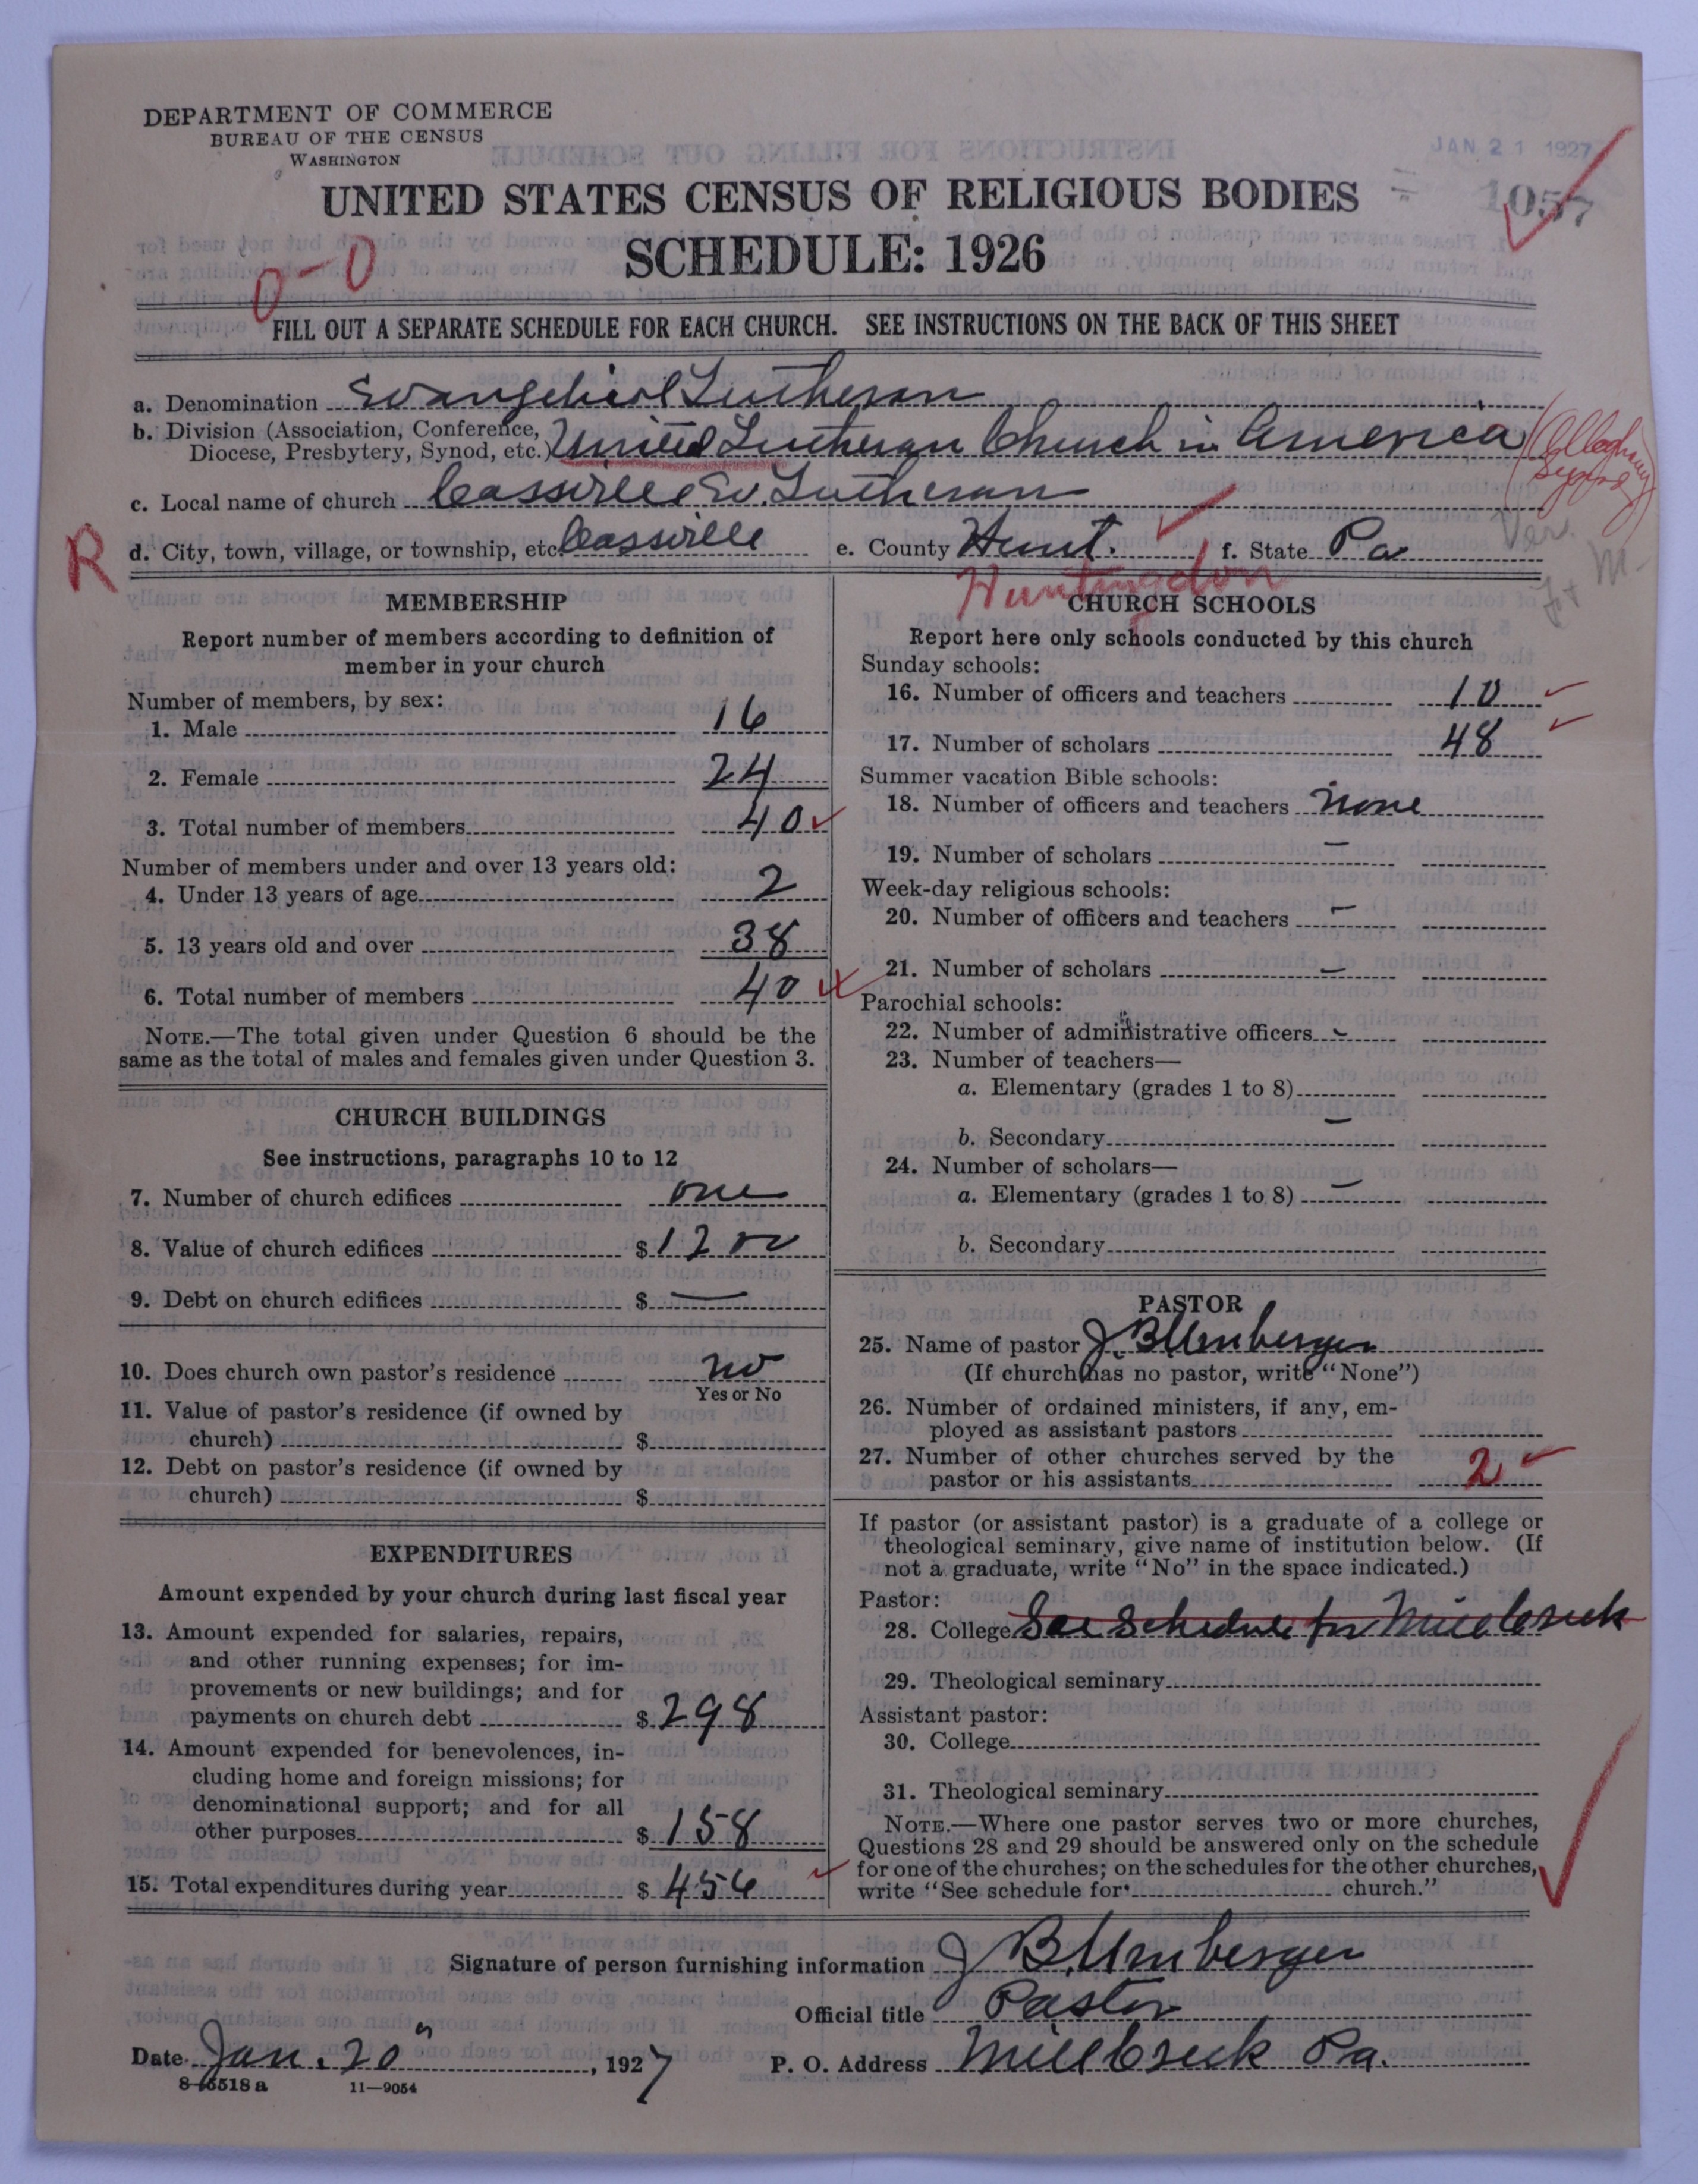 DEPARTMENT OF COMMERCE
BUREAU OF THE CENSUS
WASHINGTON
JAN 21 1927
UNITED STATES CENSUS OF RELIGIOUS BODIES
1057
SCHEDULE: 1926
0-0
FILL OUT A SEPARATE SCHEDULE FOR EACH CHURCH. SEE INSTRUCTIONS ON THE BACK OF THIS SHEET
a. Denomination Evangelical Lutheran
b. Division (Association, Conference, Diocese, Presbytery, Synod, etc.) United Lutheran Church in America (Allegheny Synod)
c. Local name of church Cassville Ev. Lutheran
R
d. City, town, village, or township, etc. Cassville e. County Hunt. f. State Pa
Huntingdon
Ver.
MEMBERSHIP
Report number of members according to definition of
member in your church
Number of members, by sex:
1. Male 16
2. Female 24
3. Total number of members 40
Number of members under and over 13 years old:
4. Under 13 years of age 2
5. 13 years old and over 38
6. Total number of members 40
NOTE.—The total given under Question 6 should be the
same as the total of males and females given under Question 3.
CHURCH BUILDINGS
See instructions, paragraphs 10 to 12
7. Number of church edifices one
8. Value of church edifices $ 1200
9. Debt on church edifices $ —
10. Does church own pastor's residence no
Yes or No
11. Value of pastor's residence (if owned by
church) $
12. Debt on pastor's residence (if owned by
church) $
EXPENDITURES
Amount expended by your church during last fiscal year
13. Amount expended for salaries, repairs,
and other running expenses; for im-
provements or new buildings; and for
payments on church debt $ 298
14. Amount expended for benevolences, in-
cluding home and foreign missions; for
denominational support; and for all
other purposes $ 158
15. Total expenditures during year $ 456
CHURCH SCHOOLS
Report here only schools conducted by this church
Sunday schools:
16. Number of officers and teachers 10
17. Number of scholars 48
Summer vacation Bible schools:
18. Number of officers and teachers none
19. Number of scholars —
Week-day religious schools:
20. Number of officers and teachers —
21. Number of scholars —
Parochial schools:
22. Number of administrative officers —
23. Number of teachers—
a. Elementary (grades 1 to 8)
b. Secondary —
24. Number of scholars—
a. Elementary (grades 1 to 8) —
b. Secondary
PASTOR
25. Name of pastor J. B Umberger
(If church has no pastor, write "None")
26. Number of ordained ministers, if any, em-
ployed as assistant pastors
27. Number of other churches served by the
pastor or his assistants 2
If pastor (or assistant pastor) is a graduate of a college or
theological seminary, give name of institution below. (If
not a graduate, write "No" in the space indicated.)
Pastor:
28. College See Schedule for Millcreek
29. Theological seminary
Assistant pastor:
30. College
31. Theological seminary
NOTE.—Where one pastor serves two or more churches,
Questions 28 and 29 should be answered only on the schedule
for one of the churches; on the schedules for the other churches,
write "See schedule for church."
Signature of person furnishing information J B. Umberger
Official title Pastor
Date Jan. 20", 1927 P. O. Address Millcreek Pa.
8-5518 a 11—9054